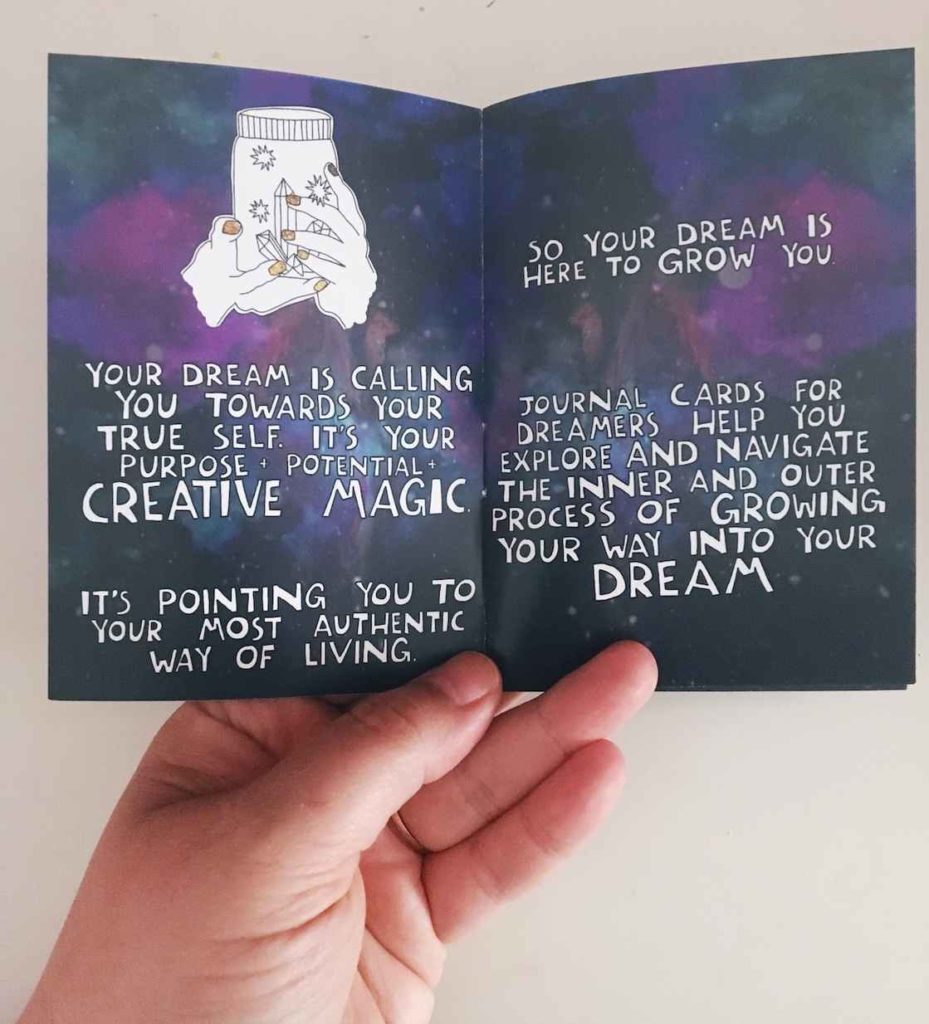 YOUR DREAM IS CALLING
YOU TOWARDS YOUR
TRUE SELF. IT'S YOUR
PURPOSE + POTENTIAL +
CREATIVE MAGIC.
IT'S POINTING YOU TO
YOUR MOST AUTHENTIC
WAY OF LIVING.
SO YOUR DREAM IS
HERE TO GROW YOU.
JOURNAL CARDS FOR
DREAMERS HELP YOU
EXPLORE AND NAVIGATE
THE INNER AND OUTER
PROCESS OF GROWING
YOUR WAY INTO YOUR
DREAM